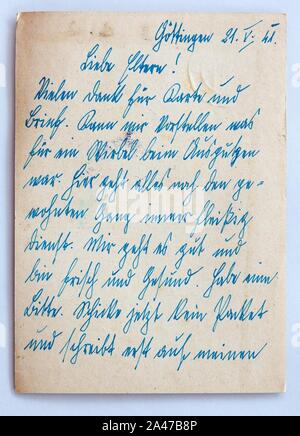 Göttingen 21. V. 41.
Liebe Eltern!
Vielen Dank für Karte und
Brief. Kann mir Vorstellen was
für ein Wirbel beim Ausputzen
war. Hier geht alles nach den ge-
wohnten Gang immer fleißig
Dienst. Mir geht es gut und
bin frisch und Gesund. Habe eine
Bitte. Schicke jetzt kein Packet
und schreibt erst auf meinen
alamy
2A47B8P